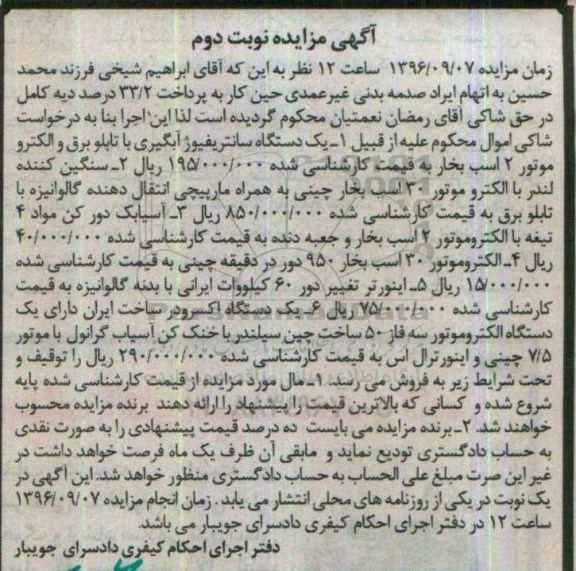 آگهی مزایده نوبت دوم
زمان مزایده ۱۳۹۶/۰۹/۰۷ ساعت ۱۲ نظر به این که آقای ابراهیم شیخی فرزند محمد
حسین به اتهام ایراد صدمه بدنی غیرعمدی حین کار به پرداخت ۳۳/۲ درصد دیه کامل
در حق شاکی آقای رمضان نعمتیان محکوم گردیده است لذا این اجرا بنا به درخواست
شاکی اموال محکوم علیه از قبیل ۱-یک دستگاه سانتریفیوژ آبگیری با تابلو برق و الکترو
موتور ۲ اسب بخار به قیمت کارشناسی شده ۱۹۵/۰۰۰/۰۰۰ ریال ۲- سنگین کننده
لندر با الکترو موتور ۳۰ اسب بخار چینی به همراه مارپیچی انتقال دهنده گالوانیزه با
تابلو برق به قیمت کارشناسی شده ۸۵۰/۰۰۰/۰۰۰ ریال ۳- آسیابک دور کن مواد ۴
تیغه با الکتروموتور ۲ اسب بخار و جعبه دنده به قیمت کارشناسی شده ۴۰/۰۰۰/۰۰۰
ریال ۴- الکتروموتور ۳۰ اسب بخار ۹۵۰ دور در دقیقه چینی به قیمت کارشناسی شده
۱۵/۰۰۰/۰۰۰ ریال ۵- اینورتر تغییر دور ۶۰ کیلووات ایرانی با بدنه گالوانیزه به قیمت
کارشناسی شده ۷۵/۰۰۰/۰۰۰ ریال ۶- یک دستگاه اکسرودر ساخت ایران دارای یک
دستگاه الکتروموتور سه فاز ۵۰ ساخت چین سیلندر با خنک کن آسیاب گرانول با موتور
۷/۵ چینی و اینور ترال اس به قیمت کارشناسی شده ۲۹۰/۰۰۰/۰۰۰ ریال را توقیف و
تحت شرایط زیر به فروش می رسد. ۱-مال مورد مزایده از قیمت کارشناسی شده پایه
شروع شده و کسانی که بالاترین قیمت را پیشنهاد را ارائه دهند برنده مزایده محسوب
خواهند شد. ۲-برنده مزایده می بایست ده درصد قیمت پیشنهادی را به صورت نقدی
به حساب دادگستری تودیع نماید و مابقی آن ظرف یک ماه فرصت خواهد داشت در
غیر این صرت مبلغ علی الحساب به حساب دادگستری منظور خواهد شد. این آگهی در
یک نوبت در یکی از روزنامه های محلی انتشار می یابد. زمان انجام مزایده ۱۳۹۶/۰۹/۰۷
ساعت ۱۲ در دفتر اجرای احکام کیفری دادسرای جویبار می باشد.
دفتر اجرای احکام کیفری دادسرای جویبار